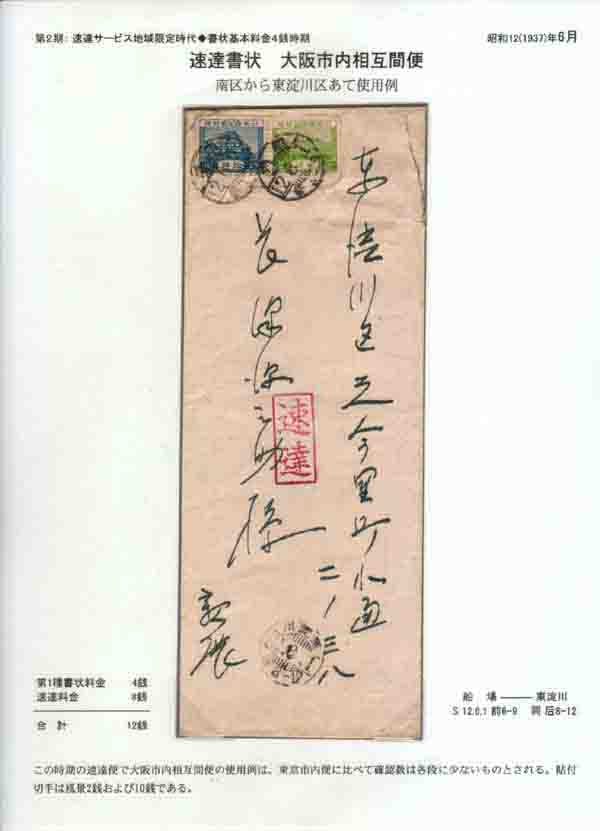 第2期: 速達サービス地域限定時代◆書状基本料金4銭時期
昭和12(1937)年6月
速達書状 大阪市内相互間便
南区から東淀川区あて使用例
東淀川区三今里町小通
二ノ三八
様
速達
親展
第1種書状料金 4銭
速達料金 8銭
合計 12銭
船場――東淀川
S12.6.1 前6-9 同 后8-12
この時期の速達便で大阪市内相互間便の使用例は、東京市内便に比べて確認数は各段に少ないものとされる。貼付
切手は風景2銭および10銭である。